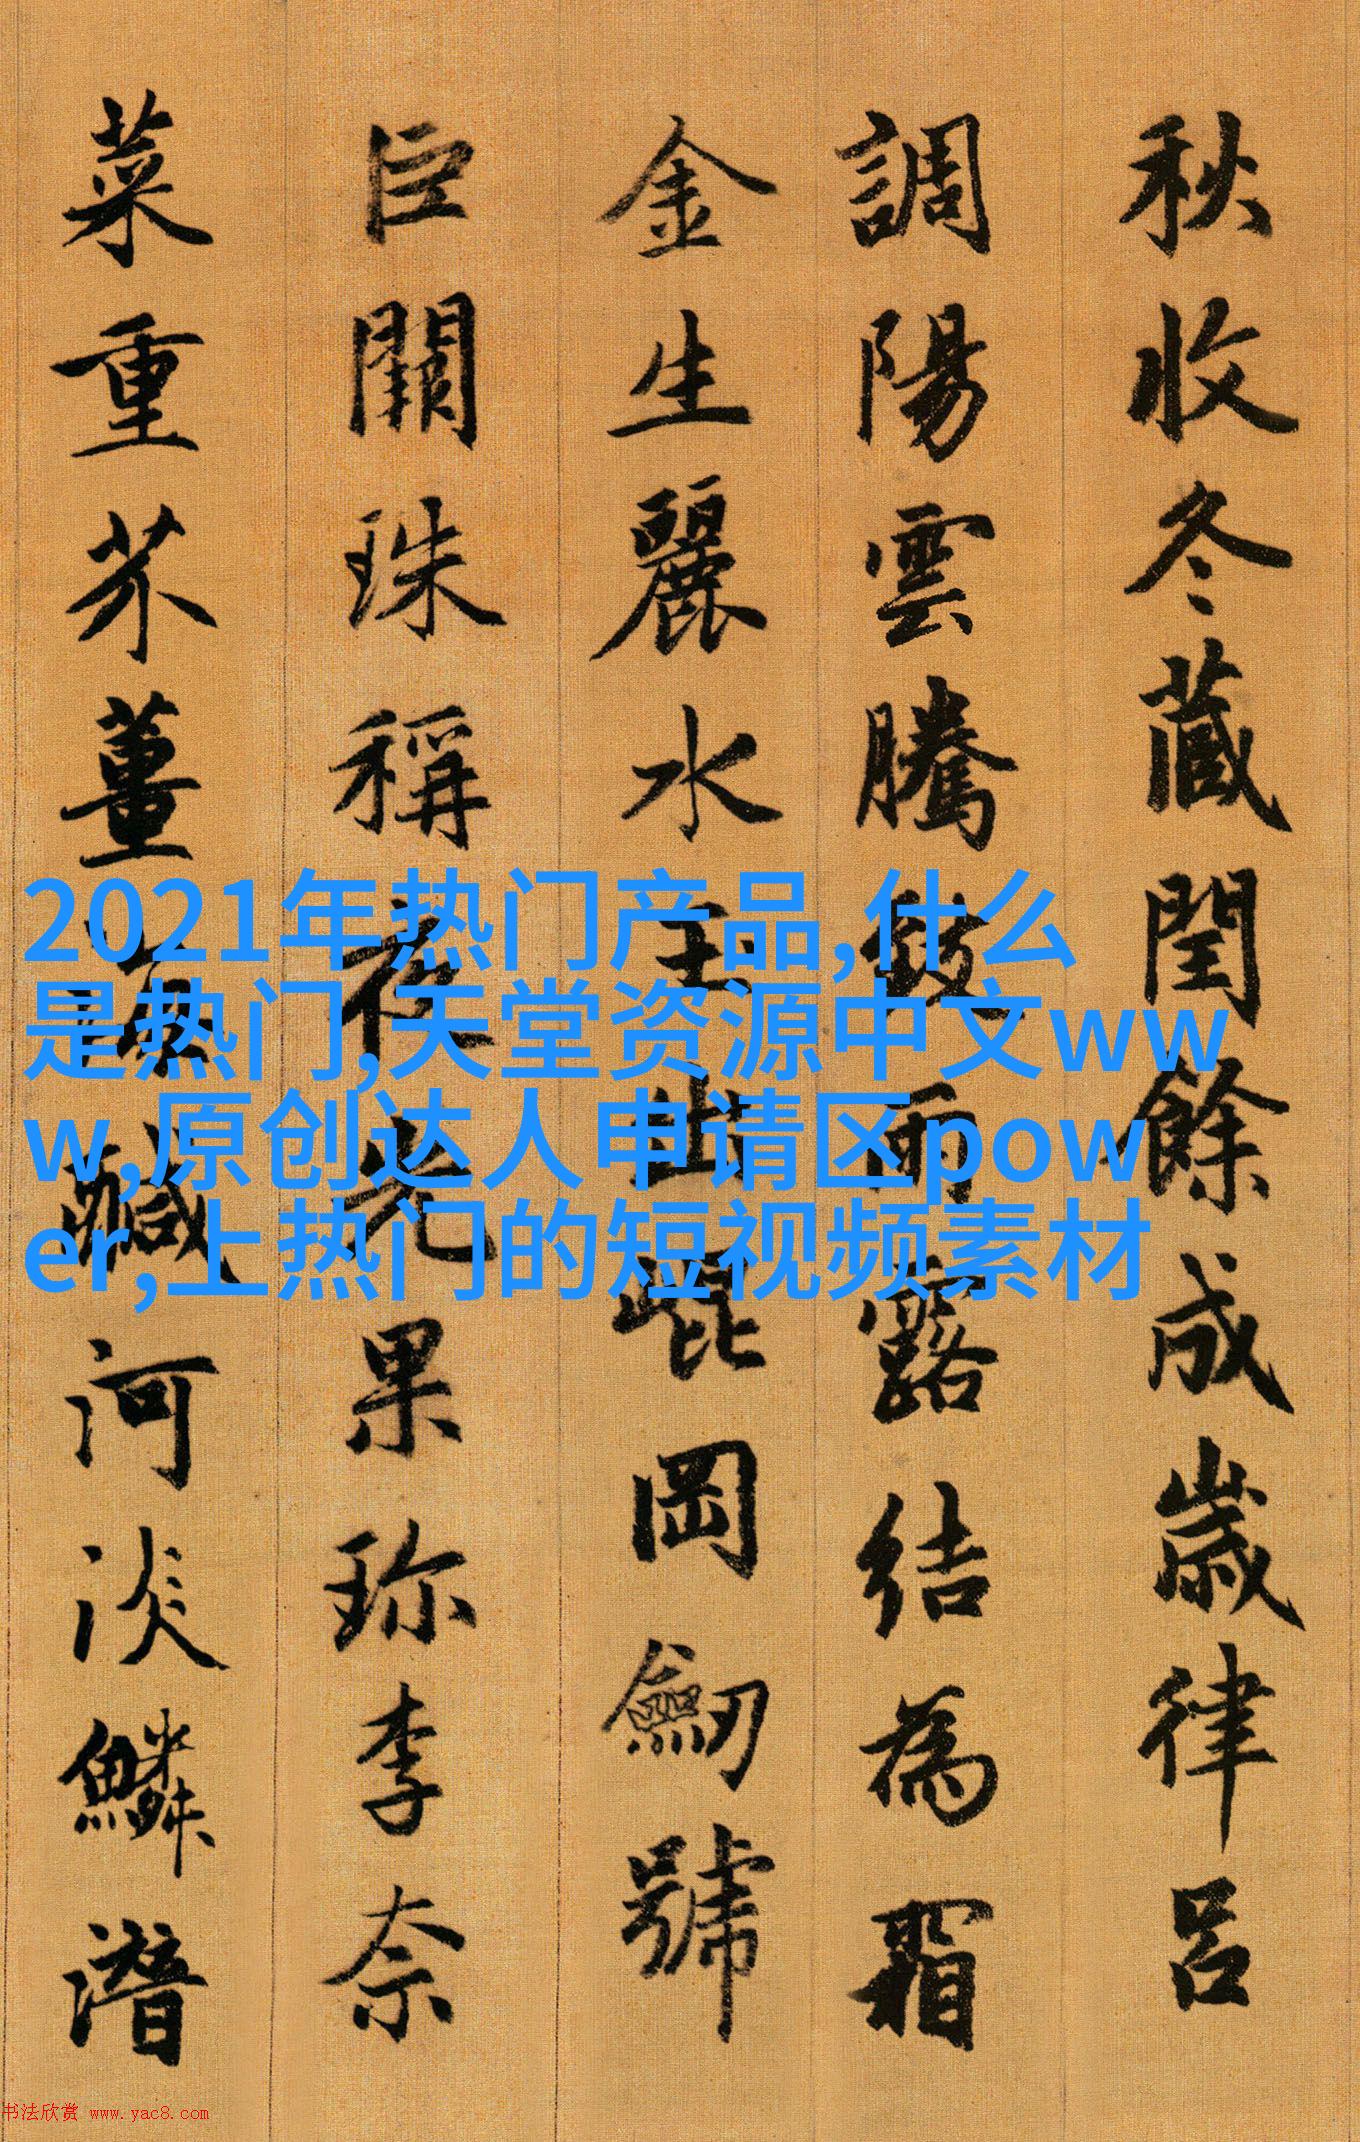 秋收冬藏閏餘成歲律呂
調陽雲騰致雨露結為霜
金生麗水玉出崐岡劒號
巨闕珠稱夜光果珍李奈
菜重芥薑海鹹河淡鱗潛
2021年热门产品,什么
是热门,天堂资源中文ww
w,原创达人申请区pow
er,上热门的短视频素材
书法欣赏 www.yac8.com